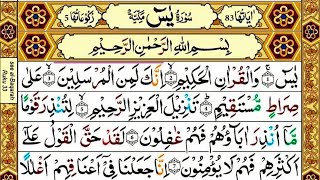 اٰيَاتُهَا 83 سُوْرَةُ يٰسٓ مَكِّيَّةٌ رُكُوْعَاتُهَا 5
بِسْمِ اللّٰهِ الرَّحْمٰنِ الرَّحِيْمِ
يٰسٓ ۝ وَالْقُرْاٰنِ الْحَكِيْمِ ۝ اِنَّكَ لَمِنَ الْمُرْسَلِيْنَ ۝ عَلٰى
صِرَاطٍ مُّسْتَقِيْمٍ ۝ تَنْزِيْلَ الْعَزِيْزِ الرَّحِيْمِ ۝ لِتُنْذِرَ قَوْمًا
مَّاۤ اُنْذِرَ اٰبَآؤُهُمْ فَهُمْ غٰفِلُوْنَ ۝ لَقَدْ حَقَّ الْقَوْلُ عَلٰۤى
اَكْثَرِهِمْ فَهُمْ لَا يُؤْمِنُوْنَ ۝ اِنَّا جَعَلْنَا فِيْۤ اَعْنَاقِهِمْ اَغْلٰلًا